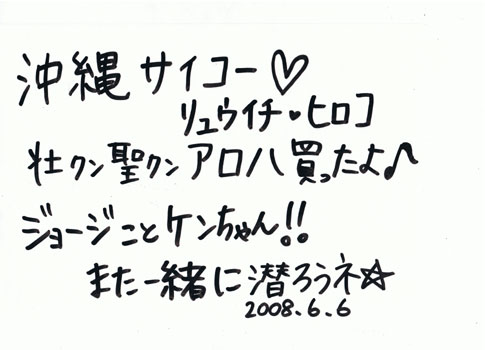 沖縄サイコー♡
リュウイチ・ヒロコ
壮クン聖クンアロハ買ったよ♪
ジョージことケンちゃん!!
また一緒に潜ろうネ☆
2008.6.6